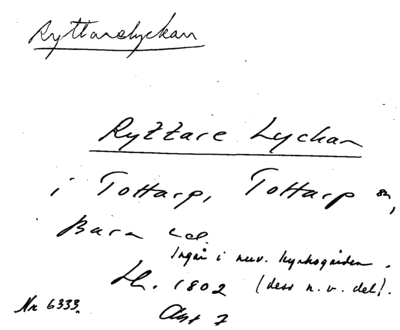 Ryttarelyckan
Ryttare Lyckan
i Tottarp, Tottarp sn,
Bara hd.
Ingår i nuv. kyrkogården.
H. 1802 (dess n. v. del).
Nr 6333. Akt 7